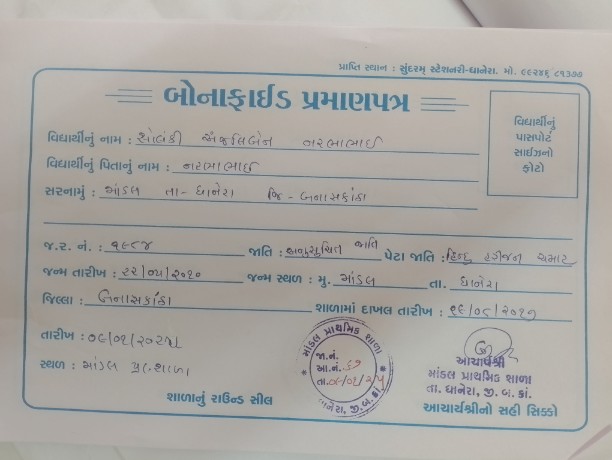 પ્રાપ્તિ સ્થાન : સુંદરમ્ સ્ટેશનરી-ધાનેરા. મો. ૯૯૨૪૬ ૮૧૩૭૭
બોનાફાઈડ પ્રમાણપત્ર
વિદ્યાર્થીનું પાસપોર્ટ સાઈઝનો ફોટો
વિદ્યાર્થીનું નામ : સોલંકી અંજલિબેન નરભાભાઈ
વિદ્યાર્થીનું પિતાનું નામ : નરભાભાઈ
સરનામું : માંડલ તા- ધાનેરા જિ - બનાસકાંઠા
જ.ર. નં. : ૧૯૮૪ જાતિ : અનુસુચિત જાતિ પેટા જાતિ : હિન્દુ હરીજન ચમાર
જન્મ તારીખ : ૨૨/૦૫/૨૦૧૦ જન્મ સ્થળ : મુ. માંડલ તા. ધાનેરા
જિલ્લા : બનાસકાંઠા શાળામાં દાખલ તારીખ : ૧૯/૦૬/૨૦૧૭
તારીખ :
સ્થળ : માંડલ પ્રા. શાળા
શાળાનું રાઉન્ડ સીલ
માંડલ પ્રાથમિક શાળા
જા.નં.
આ.નં. ૬૭
તા.
ધાનેરા, જી.બ.કાં.
આચાર્યશ્રી
માંડલ પ્રાથમિક શાળા
તા. ધાનેરા, જી. બ. કાં.
આચાર્યશ્રીનો સહી સિક્કો